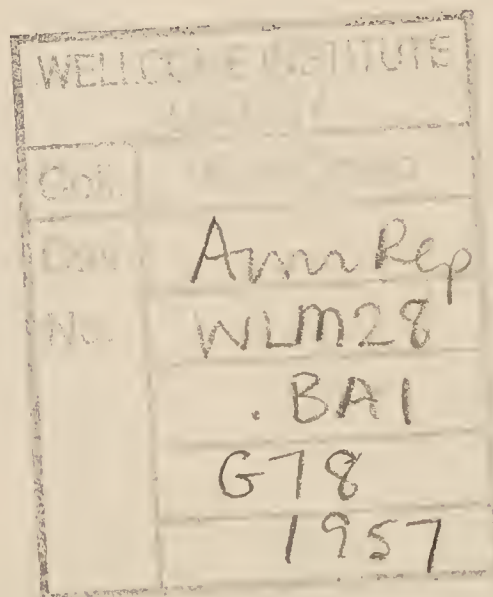 WELLCOME INSTITUTE
LIBRARY
Coll.
Ann Rep
No.
WLM28
.BA1
G78
1957